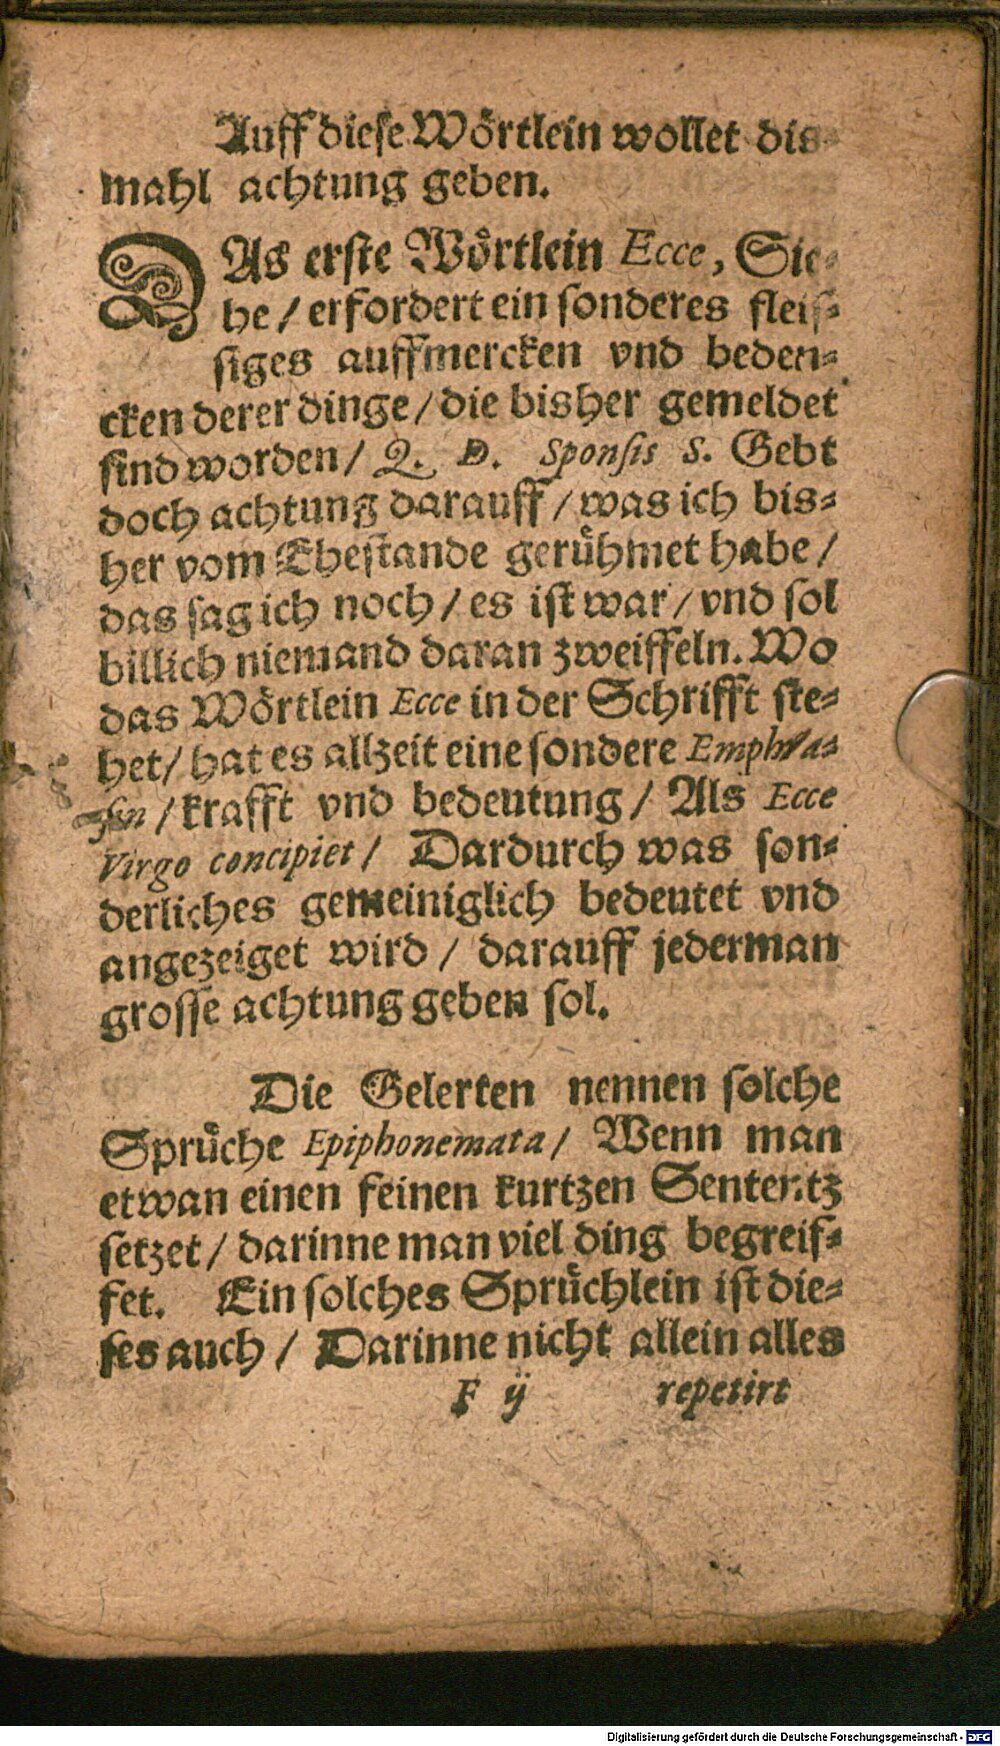 Auff diese Wörtlein wollet dis-
mahl achtung geben.
DAs erste Wörtlein Ecce, Sie-
he / erfordert ein sonderes fleis-
siges auffmercken vnd beden-
cken derer dinge / die bisher gemeldet
sind worden / Q. D. Sponsis S. Gebt
doch achtung darauff / was ich bis-
her vom Ehestande gerühmet habe /
das sag ich noch / es ist war / vnd sol
billich niemand daran zweiffeln. Wo
das Wörtlein Ecce in der Schrifft ste-
het / hat es allzeit eine sondere Empha-
sin / krafft vnd bedeutung / Als Ecce
Virgo concipiet / Dardurch was son-
derliches gemeiniglich bedeutet vnd
angezeiget wird / darauff jederman
grosse achtung geben sol.
Die Gelerten nennen solche
Sprüche Epiphonemata / Wenn man
etwan einen feinen kurtzen Sententz
setzet / darinne man viel ding begreif-
fet. Ein solches Sprüchlein ist die-
ses auch / Darinne nicht allein alles
F ij repetirt
Digitalisierung gefördert durch die Deutsche Forschungsgemeinschaft - DFG